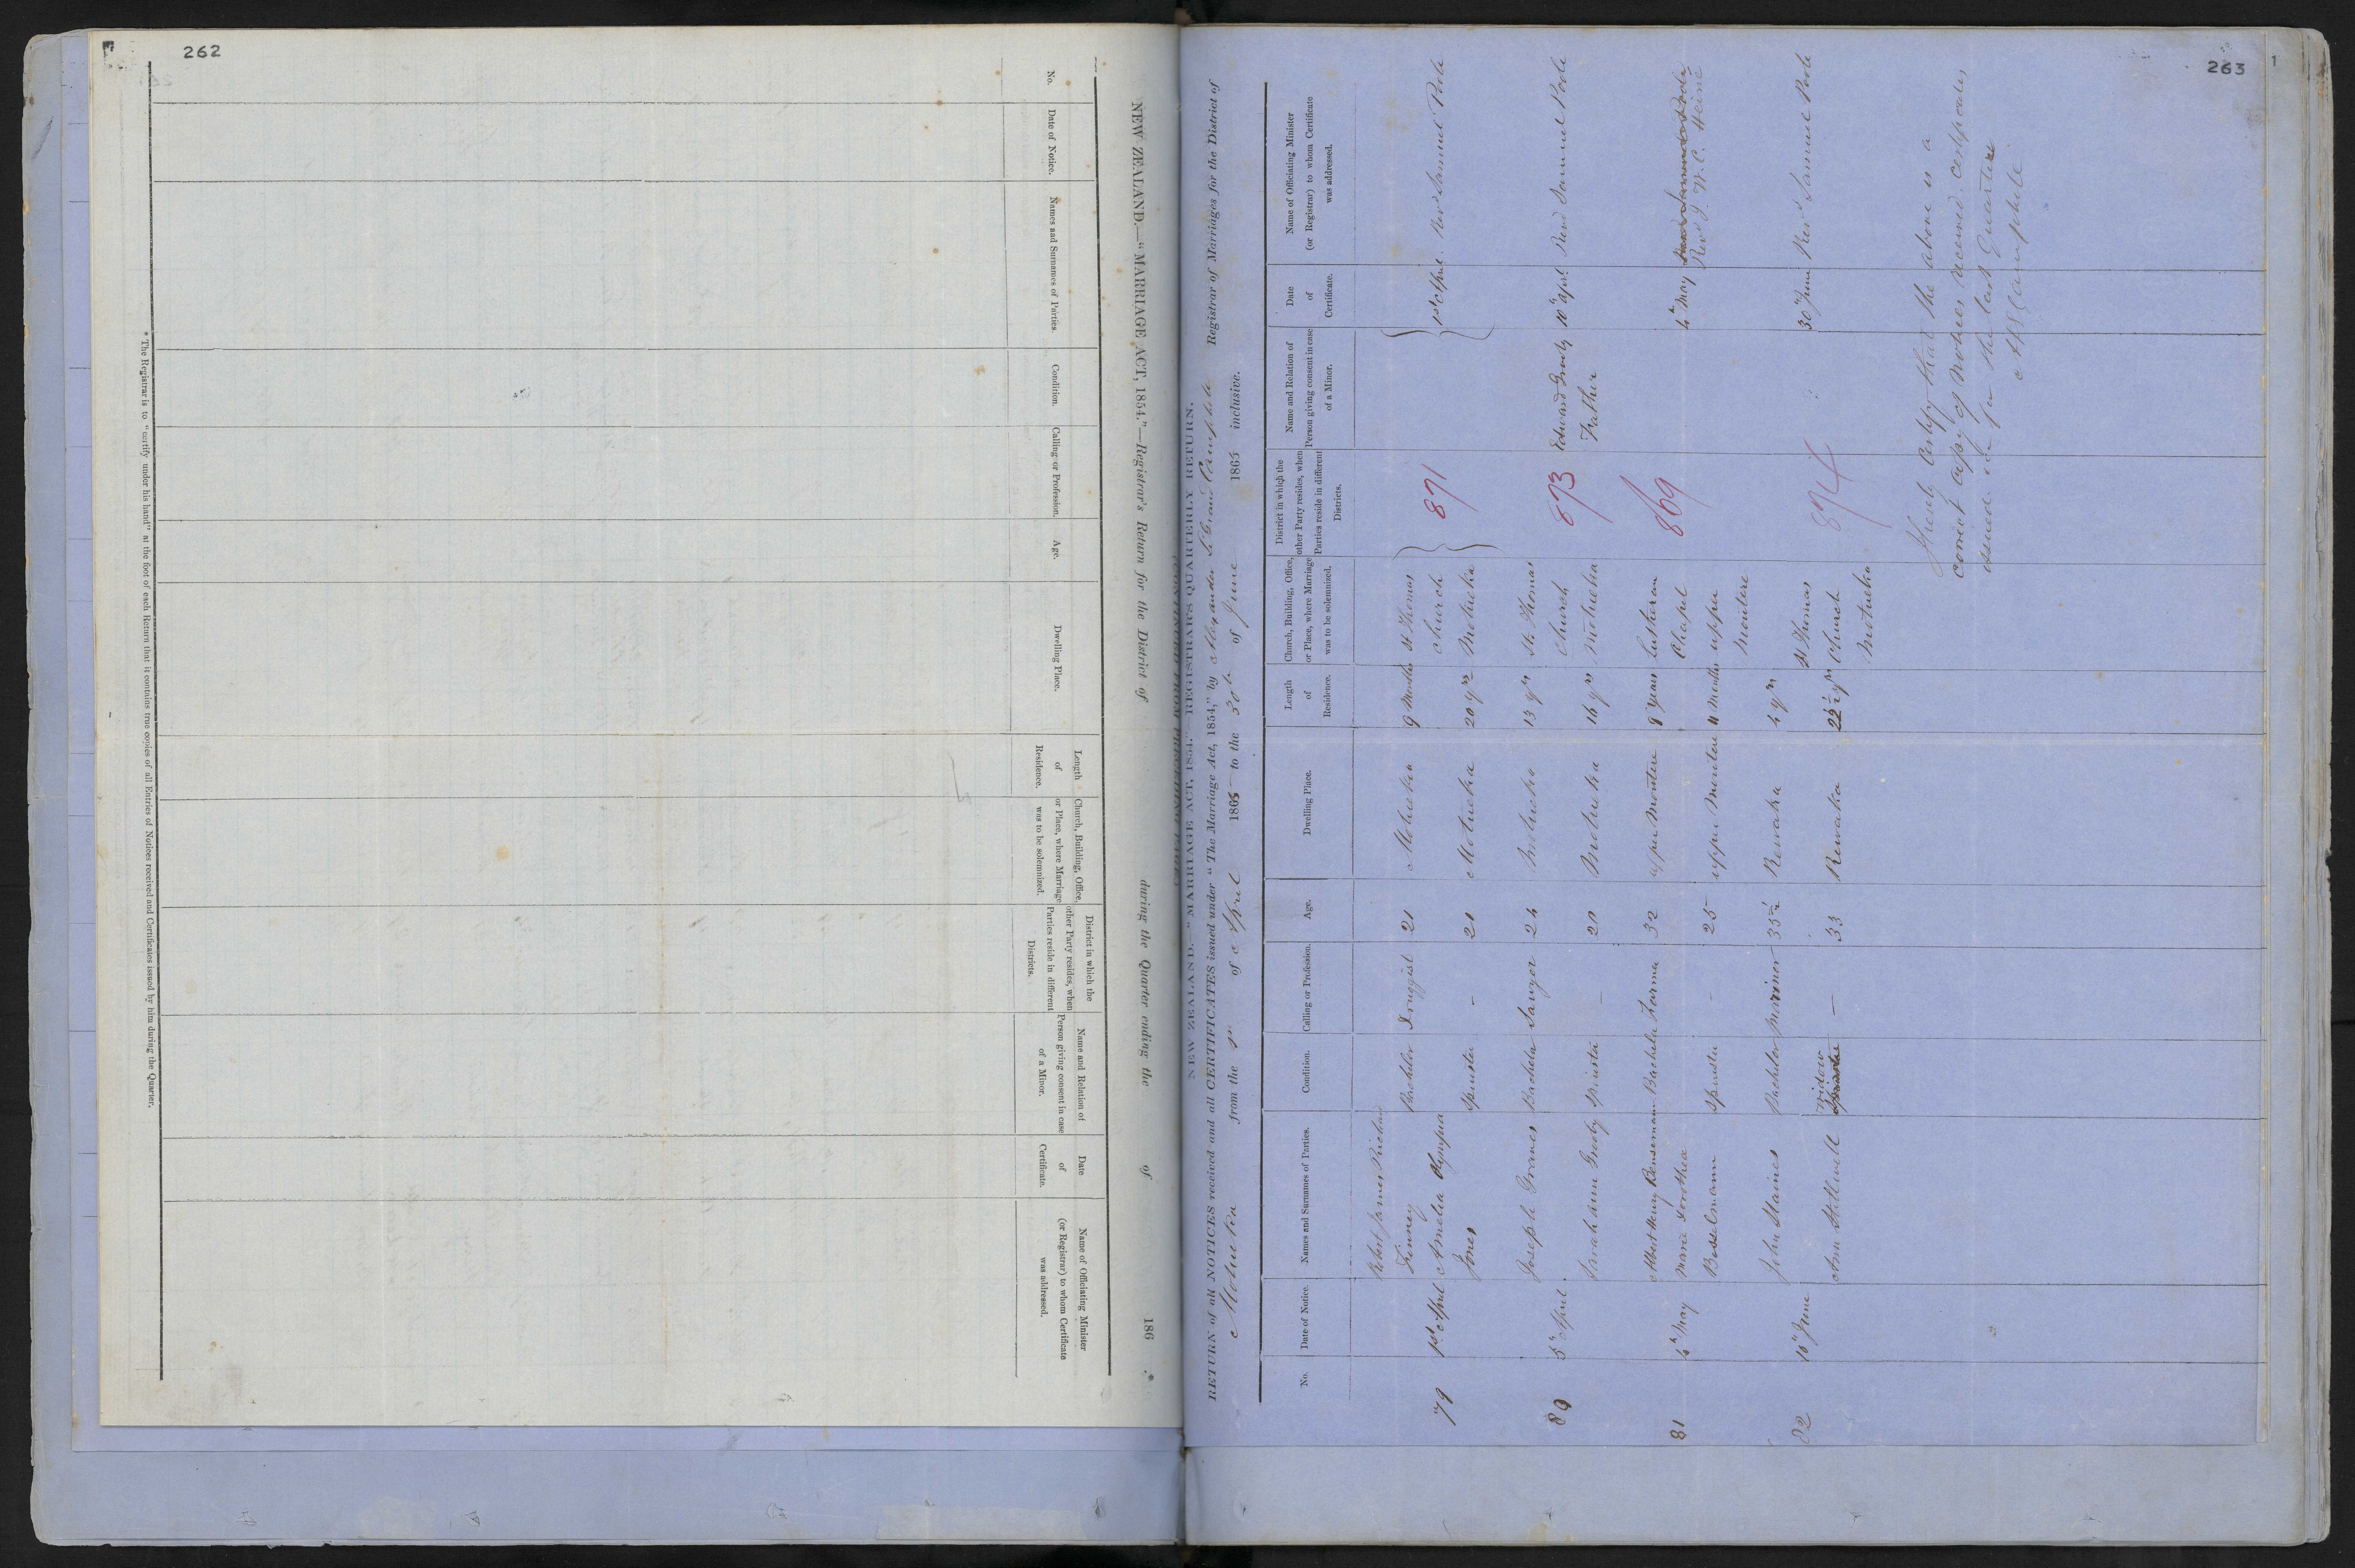 262
NEW ZEALAND.—"MARRIAGE ACT, 1854."—Registrar's Return for the District of during the Quarter ending the of 186 .
No.
Date of Notice.
Names and Surnames of Parties.
Condition.
Calling or Profession.
Age.
Dwelling Place.
Length
of
Residence.
Church, Building, Office,
or Place, where Marriage
was to be solemnized.
District in which the
other Party resides, when
Parties reside in different
Districts.
Name and Relation of
Person giving consent in case
of a Minor.
Date
of
Certificate.
Name of Officiating Minister
(or Registrar) to whom Certificate
was addressed.
* The Registrar is to "certify under his hand" at the foot of each Return that it contains true copies of all Entries of Notices received and Certificates issued by him during the Quarter.
263
NEW ZEALAND.—"MARRIAGE ACT, 1854." REGISTRAR'S QUARTERLY RETURN.
RETURN of all NOTICES received and all CERTIFICATES issued under "The Marriage Act, 1854," by Alexander Registrar of Marriages for the District of
Motueka from the 1st of April 1865 to the 30th of June 1865 inclusive.
No.
Date of Notice.
Names and Surnames of Parties.
Condition.
Calling or Profession.
Age.
Dwelling Place.
Length
of
Residence.
Church, Building, Office,
or Place, where Marriage
was to be solemnized.
District in which the
other Party resides, when
Parties reside in different
Districts.
Name and Relation of
Person giving consent in case
of a Minor.
Date
of
Certificate.
Name of Officiating Minister
(or Registrar) to whom Certificate
was addressed.
Robert James Richard
Finney Bachelor Druggist 21 Motueka 9 Months St Thomas
79 1st April Amelia Olympia church 871 1st April Revd Samuel Poole
Jones Spinster - 21 Motueka 20 yrs Motueka
Joseph Graves Bachelor Sawyer 24 Motueka 13 yrs St. Thomas
80 5th April Church 873 Edward Grooby 10th April Revd Samuel Poole
Sarah Ann Grooby Spinster — 20 Motueka 16 yrs Motueka Father
Albert Henry Benseman Bachelor Farmer 32 upper Moutere 8 years Lutheran 869
81 4th May Maria Dorothea Chapel 4th May Revd Samuel Poole
Revd J. W. C. Heine
Bosselmann Spinster - 25 upper Moutere 11 Months upper
Moutere
John Staines Bachelor Mariner 35½ Riwaka 4 yrs St Thomas
82 10th June Church 874 30th June Revd Samuel Poole
Widow
Ann Stillwell Spinster — 33 Riwaka 22½ yrs Motueka
I hereby certify that the above is a
correct copy of Notices received certificates
issued for the last Quarter